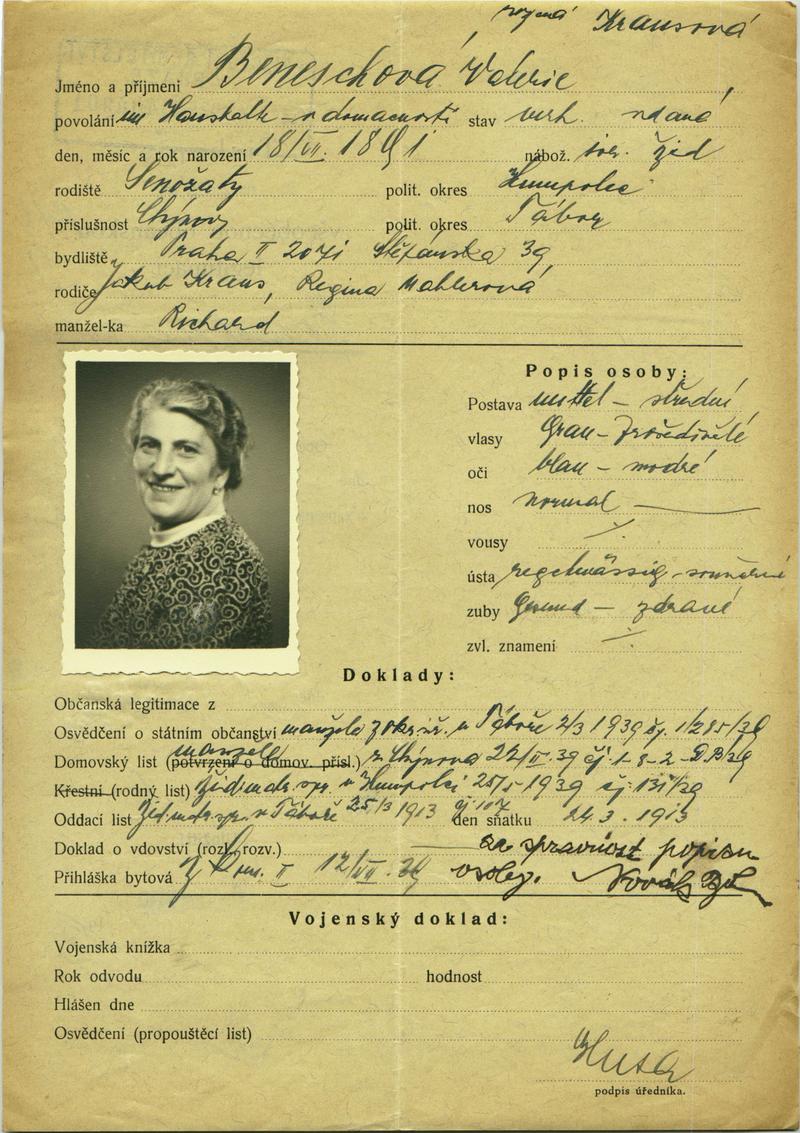 rozená Krausová
Jméno a příjmení Beneschová Valerie,
povolání im Haushalt – v domácnosti stav verh. vdaná
den, měsíc a rok narození 18/VII. 1891 nábož. isr. žid
rodiště Senožaty polit. okres Humpolec
příslušnost Chýnov polit. okres Tábor
bydliště Praha II 2071 Štěpánská 39,
rodiče Jakub Kraus, Regina Mahlerová
manžel-ka Richard
Popis osoby:
Postava mittel – střední
vlasy Grau – Prošedivělé
oči blau – modré
nos normal —
vousy ./.
ústa regelmässig – souměrné
zuby Gesund – zdravé
zvl. znamení ./.
Doklady:
Občanská legitimace z
Osvědčení o státním občanství manžela z okr. úř. v Táboře 2/3 1939 čj. 1285/39
manžela
Domovský list (potvrzení o domov. přísl.) z Chýnova 22/II. 39 čj 1-8-2
Křestní (rodný list) Žid. matr. spr. v Humpolci 25/5 1939 čj. 131/39
Oddací list Žid. matr. spr. v Táboře 25/3 1913 čj 107 den sňatku 24.3. 1913
Doklad o vdovství (rozl. rozv.) za správnost popisu
Přihláška bytová Z Kom. II 12/VII. 39 osoby. Novák
Vojenský doklad:
Vojenská knížka
Rok odvodu hodnost
Hlášen dne
Osvědčení (propouštěcí list)
Husa
podpis úředníka.